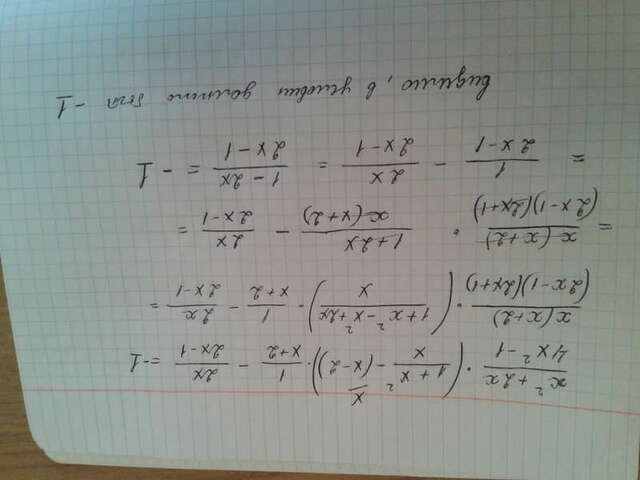 (x² + 2x)/(4x² - 1) · ((1 + x²)/x - (x - 2)) · 1/(x + 2) - 2x/(2x - 1) = -1
x
(x(x+2))/((2x-1)(2x+1)) · ((1 + x² - x² + 2x)/x) · 1/(x+2) - 2x/(2x-1) =
= (x(x+2))/((2x-1)(2x+1)) · (1+2x)/(x(x+2)) - 2x/(2x-1) =
= 1/(2x-1) - 2x/(2x-1) = (1-2x)/(2x-1) = -1
Видимо, в условии должно быть -1